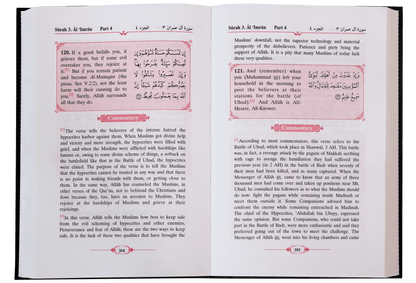 Sûrah 3. Âl 'Imrân Part 4
الجزء ٤
سورة آل عمران ٣
120. If a good befalls you, it
grieves them, but if some evil
overtakes you, they rejoice at
it. But if you remain patient
and become Al-Muttaqûn (the
pious. See V.2:2), not the least
harm will their cunning do to
you. Surely, Allâh surrounds
all that they do.
Commentary
The verse tells the believers of the intense hatred the
hypocrites harbor against them. When Muslims got divine help
and victory and more strength, the hypocrites were filled with
grief, and when the Muslims were afflicted with hardships like
famine or, owing to some divine scheme of things, a setback on
the battlefield like that in the Battle of Uhud, the hypocrites
were elated. The purpose of the verse is to tell the Muslims
that the hypocrites cannot be trusted in any way and that there
is no point in making friends with them, or getting close to
them. In the same way, Allâh has counseled the Muslims, in
other verses of the Qur'an, not to befriend the Christians and
Jews because they, too, have an aversion to Muslims. They
rejoice at the hardships of Muslims and grieve at their
rejoicings.
In this verse, Allâh tells the Muslims how best to keep safe
from the evil scheming of hypocrites and other enemies.
Perseverance and fear of Allâh; these are the two ways to keep
safe. It is the lack of these two qualities that have brought the
304
Sûrah 3. Âl 'Imrân Part 4
الجزء ٤
سورة آل عمران ٣
Muslims' downfall, not the superior technology and material
prosperity of the disbelievers. Patience and piety bring the
support of Allâh. It is a pity that many Muslims of today lack
these very qualities.
121. And (remember) when
you (Muhammad) left your
household in the morning to
post the believers at their
stations for the battle (of
Uhud). And Allâh is All-
Hearer, All-Knower.
Commentary
According to most commentators, this verse refers to the
Battle of Uhud, which took place in Shawwal, 3 AH. This battle
was, in fact, a revenge attack by the pagans of Makkah seething
with rage to avenge the humiliation they had suffered the
previous year (in 2 AH) in the battle of Badr when seventy of
their men had been killed, and as many captured. When the
Messenger of Allâh came to know that an army of three
thousand men had come over and taken up positions near Mt.
Uhud, he consulted his followers as to what the Muslims should
do now: fight the pagans while remaining inside Madinah or
meet them outside it. Some Companions advised him to
confront the enemy while remaining entrenched in Madinah.
The chief of the Hypocrites, 'Abdullah bin Ubayy, expressed
the same opinion. But some Companions, who could not take
part in the Battle of Badr, were more enthusiastic and said they
preferred going out of the town to meet the challenge. The
Messenger of Allâh went into his living chambers and came
305